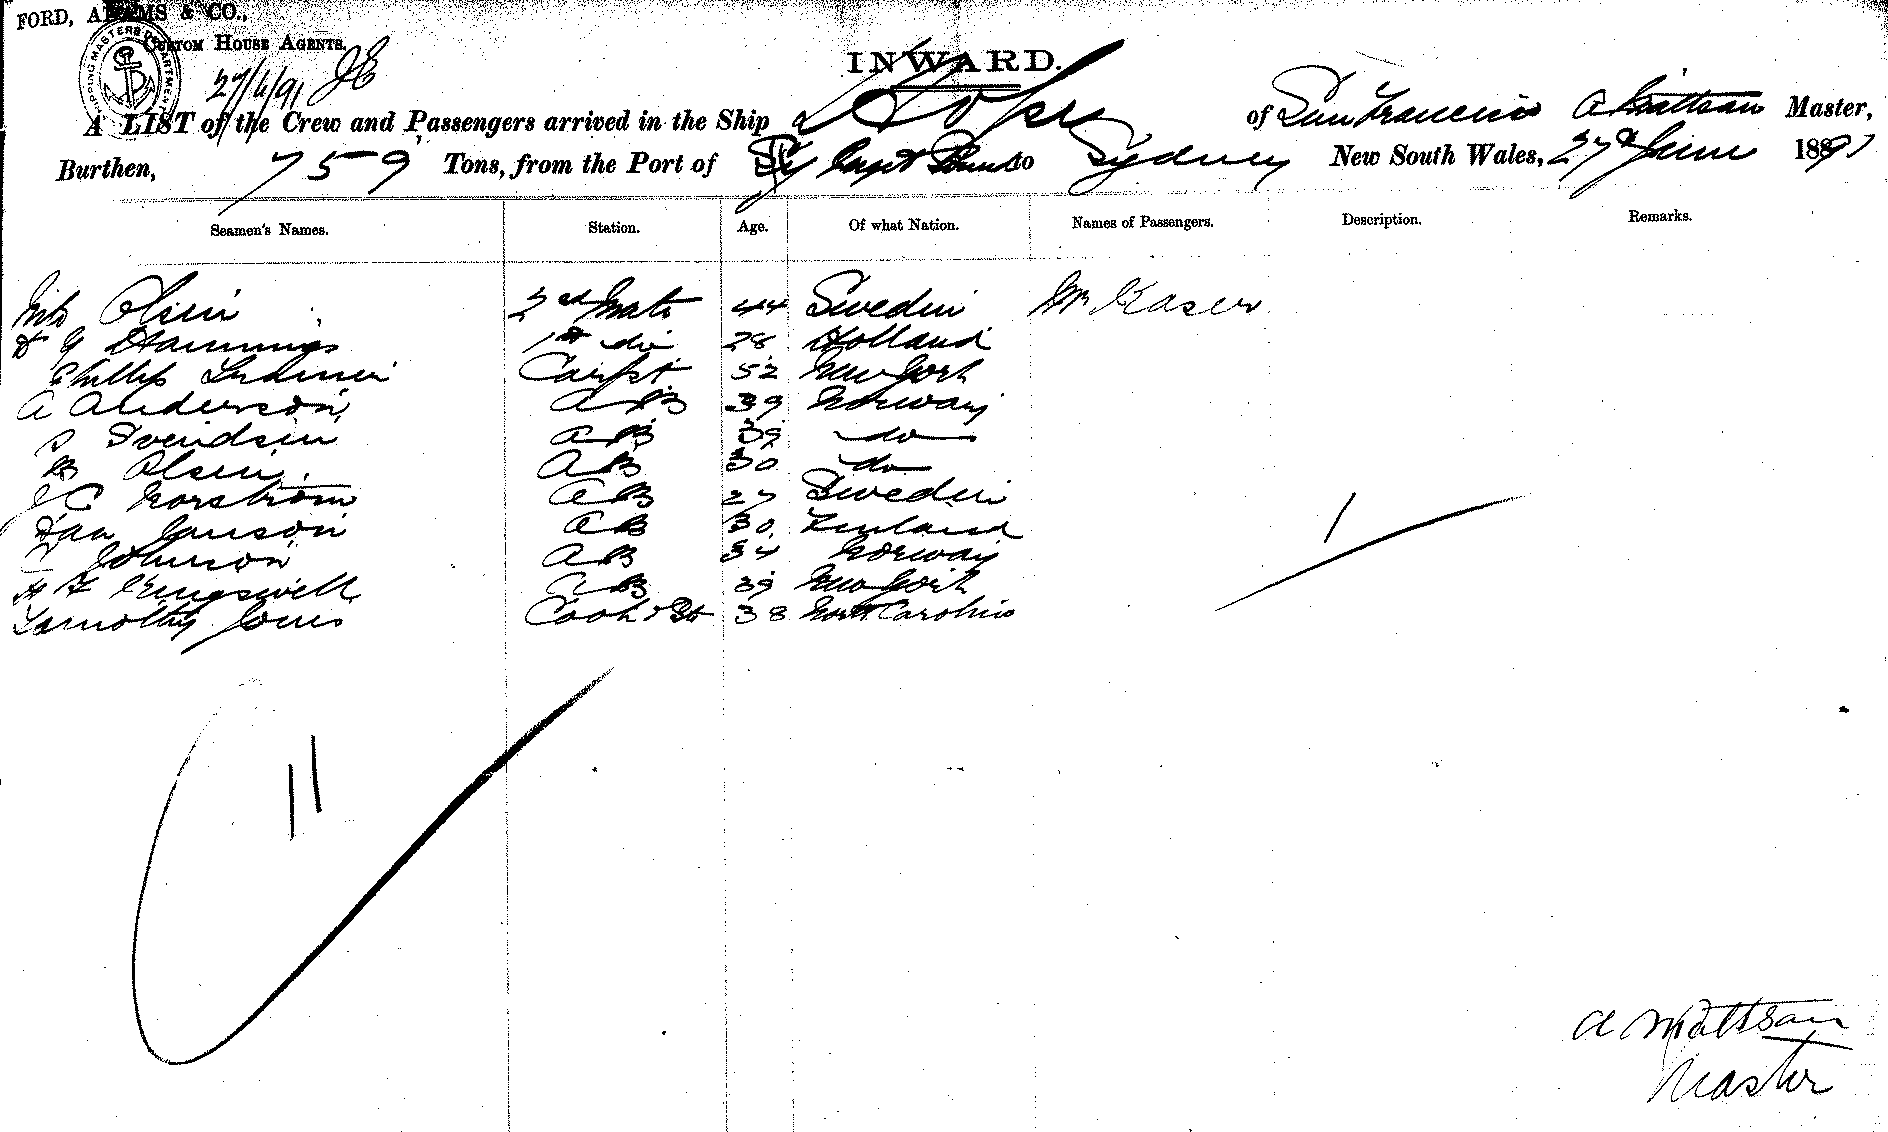 FORD, ADAMS & CO.,
CUSTOM HOUSE AGENTS.
SHIPPING MASTERS DEPARTMENT
27/6/91 JE
INWARD.
A LIST of the Crew and Passengers arrived in the Ship Hope of San Francisco A Mattsan Master,
Burthen, 759 Tons, from the Port of to Sydney New South Wales, 27th June 1891
Seamen's Names. Station. Age. Of what Nation. Names of Passengers. Description. Remarks.
Nils Olsen 2nd Mate 44 Sweden Mr Kaser
Hammings 1st do 28 Holland
Phillip Carpt 52 New York
A Anderson AB 39 Norway
S Svendsen AB 39 do
B Olsen AB 30 do
J C Norstrom AB 27 Sweden
Janson AB 30 Finland
Johnson AB 34 Norway
H F Kingswell AB 39 New York
Tamothy Jones Cook & St 38 North Carolina
1
11
A Mattsan
Master